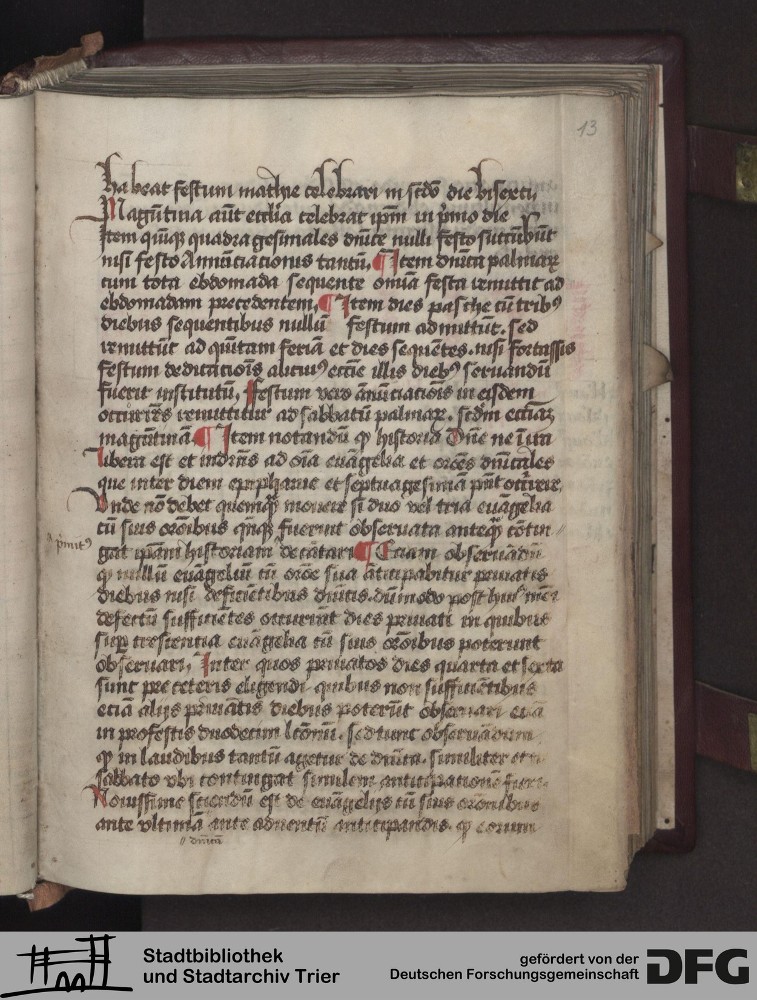 13
habeat festum mathie celebrari in scdō die bisexti
Magūtina aūt ecclīa celebrat ipm̄ in p̄mo die
Item quīq; quadragesimales dnīce nulli festo succūbūt
nisi festo Annūciacionis tantū, ¶ Item dnīca palmaꝝ
cum tota ebdomada sequente omīa festa remittit ad
ebdomadam precedentem, ¶ Item dies pasche cū tribꝰ
diebus sequentibus nullū festum admittūt. sed
remittūt ad quītam feriā et dies sequētes. nisi fortassis
festum dedicatiōis alicuiꝰ eccīe illis diebꝰ seruandū
fuerit institutū, festum vero ānūciatiōis in eisdem
occurrēs remittitur ad sabbatū palmaꝝ. scdm̄ ecciaꝫ
magūtinā ¶ Item notandū ꝙ historia Dn̄e ne ī ira
libera est et indrn̄s ad oīa euāgelia et orōēs dnīcales
que inter diem epyphanie et septuagesimā pn̄t occurrere.
Vnde nō debet quemq̄ mouere si duo vel tria euāgelia
cū suis orōnibus qn̄q; fuerint obseruata anteq̄ cōtin〃
gat ipam̄ historiam decātari ¶ Etiam obseruādū
ꝙ nullū euāgeliū cū orōe sua āticipabitur priuatis
diebus nisi deficiētibus dnīcis. dūmodo post huiꝰ
defectū sufficiētes occurrūt dies priuati in quibus
suꝑ crescentia euāgelia cū suis orōnibus poterunt
obseruari, Inter quos priuatos dies quarta et sexta
sunt pre ceteris eligendi. quibus non sufficiētibus
eciā alijs priuatis diebus poterūt obseruari eciā
in profestis duodecim lcōnū. sed tunc obseruādum
ꝙ in laudibus tantū agetur de dnīca. similiter et
sabbato vbi contingat similem anticipationē
Nouissime sciendū est de euāgelijs cū suis orōnibus
ante vltimā ante aduentū anticipandis. ꝙ eorum
〃 dnīcā
Stadtbibliothek
und Stadtarchiv Trier
gefördert von der
Deutschen Forschungsgemeinschaft
DFG